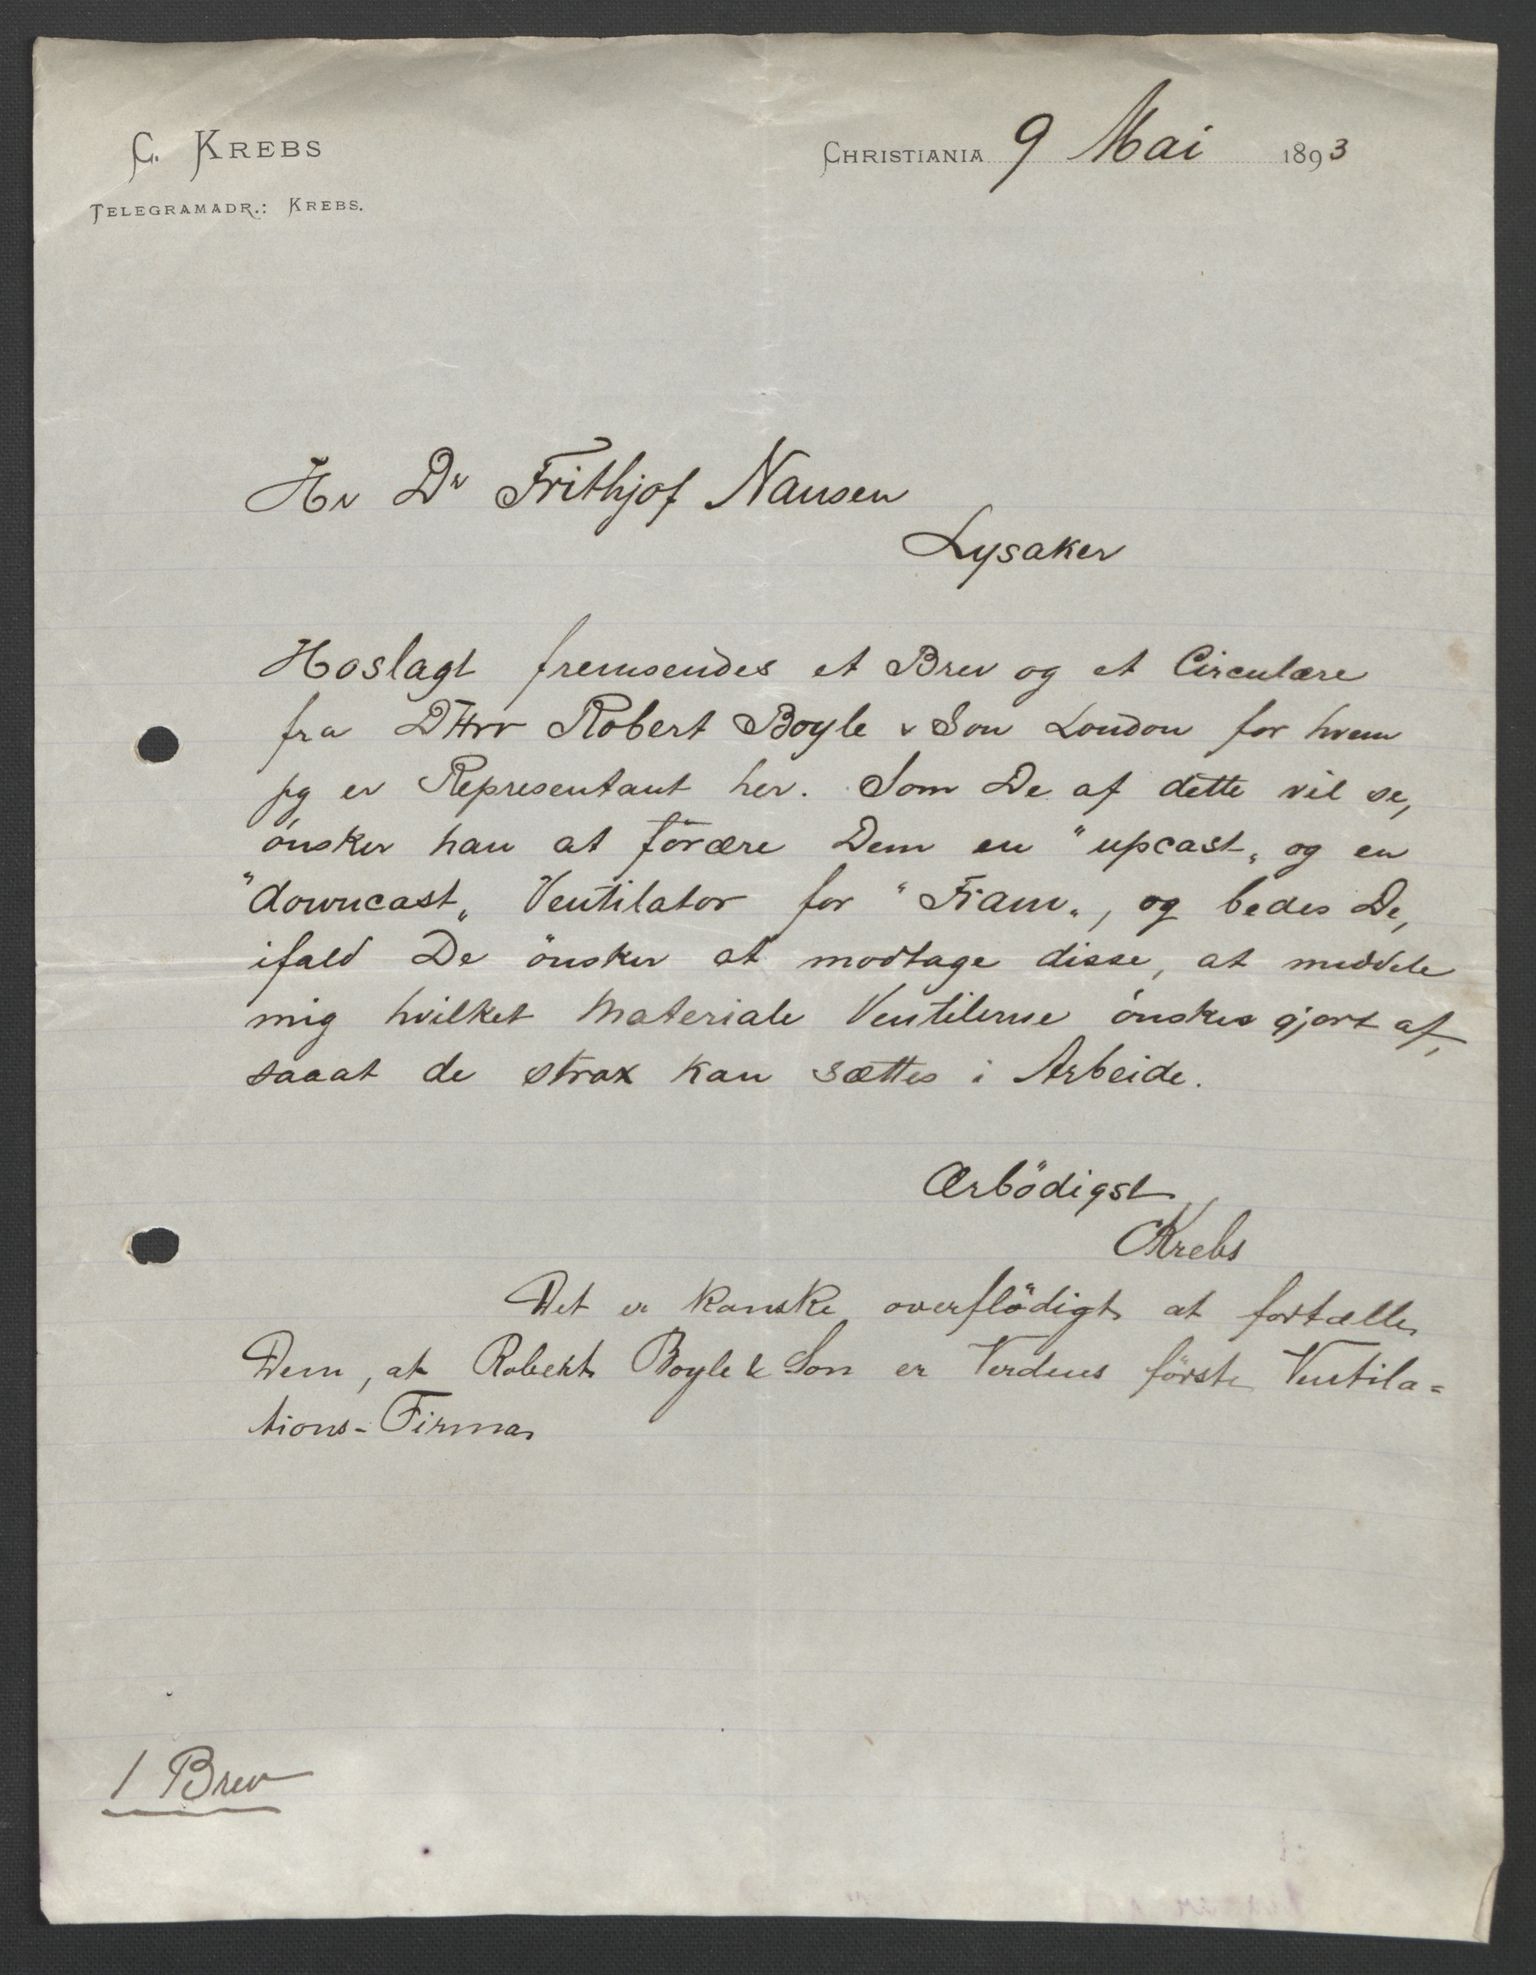 C. KREBS
TELEGRAMADR.: KREBS.
CHRISTIANIA 9 Mai 1893
Hr Dr Frithjof Nansen
Lysaker
Hoslagt fremsendes et Brev og et Circulære
fra DHrr Robert Boyle & Son London for hvem
jeg er Representant her. Som De af dette vil se,
önsker han at forære Dem en "upcast" og en
"downcast" Ventilator for "Fram", og bedes De,
ifald De önsker at modtage disse, at meddele
mig hvilket Materiale Ventilerne önskes gjort af,
saaat de strax kan sættes i Arbeide.
Ærbödigst
CKrebs
Det er kanske overflödigt at fortælle
Dem, at Robert Boyle & Son er Verdens förste Ventila=
tions-Firma
1 Brev